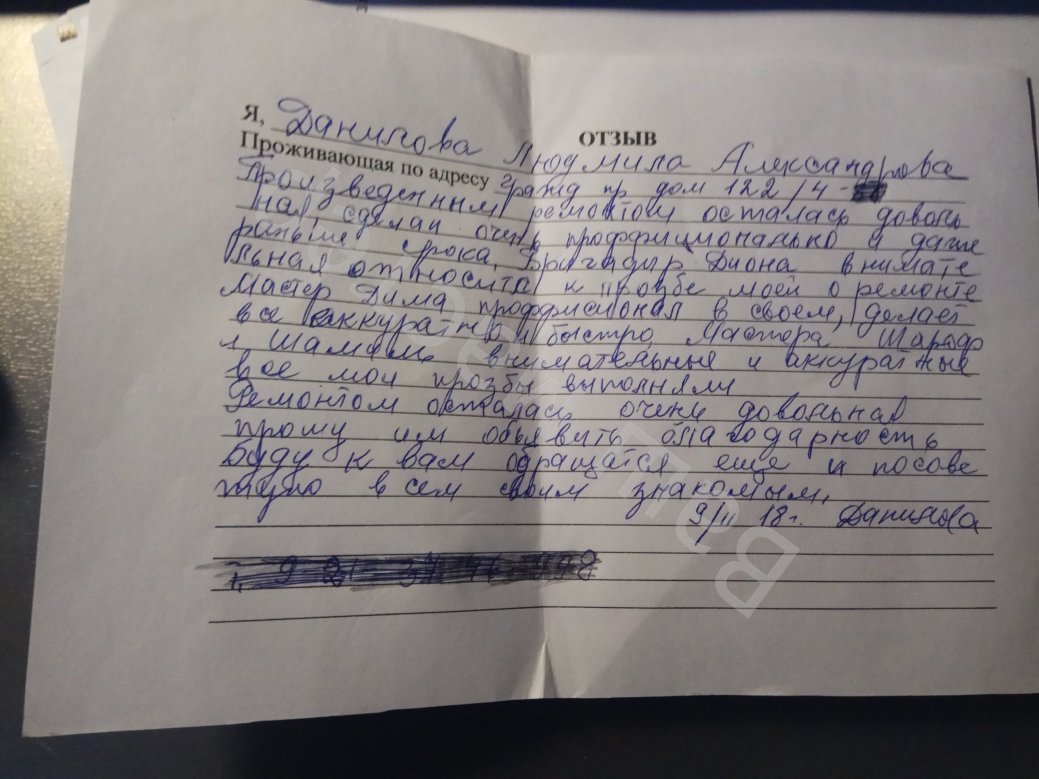 ОТЗЫВ
Я, Данилова Людмила Александровна
Проживающая по адресу Гражд пр дом 122/4-
Произведенным ремонтом осталась доволь
ная, сделан очень проффиционально и даже
раньше срока, Бригадир Диона внимате
льная относится к прозбе моей о ремонте
Мастер Дима проффисионал в своем, делает
все аккуратно и быстро, Мастера
и Шамиль внимательные и аккуратные
все мои прозбы выполняли
Ремонтом осталась очень довольная
прошу им обьявить благодарность
Буду к вам обращатся еще и посове
тую всем своим знакомым.
9/II 18г. Данилова